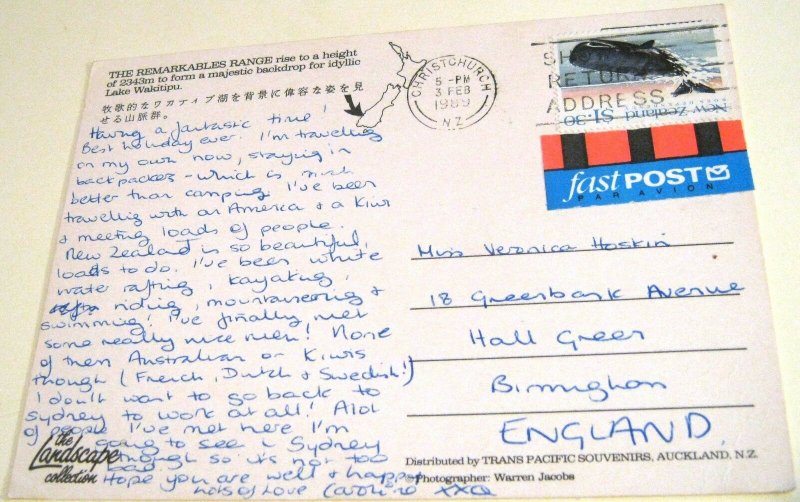 THE REMARKABLES RANGE rise to a height
of 2343m to form a majestic backdrop for idyllic
Lake Wakitipu.
牧歌的なワカティプ湖を背景に偉容な姿を見
せる山脈群。
Having a fantastic time!
Best holiday ever. I'm travelling
on my own now, staying in
backpackers - which is much
better than camping. I've been
travelling with an America & a Kiwi
& meeting loads of people.
New Zealand is so beautiful,
loads to do. I've been white
water rafting, kayaking,
riding, mountaineering &
swimming! I've finally met
some really nice men! None
of them Australian or Kiwis
though (French, Dutch & Swedish!)
I don't want to go back to
Sydney to work at all! Alot
of people I've met here I'm
going to see in Sydney
though so it's not too
bad.
Hope you are well & happy
lots of love Caroline xxx
the
Landscape
collection
CHRISTCHURCH
5 - PM
3 FEB
1989
N.Z.
SH
RETURN
ADDRESS
New Zealand $1.30
fast POST
PAR AVION
Miss Veronica Hoskin
18 Greenbank Avenue
Hall Green
Birmingham
ENGLAND.
Distributed by TRANS PACIFIC SOUVENIRS, AUCKLAND, N.Z.
©Photographer: Warren Jacobs